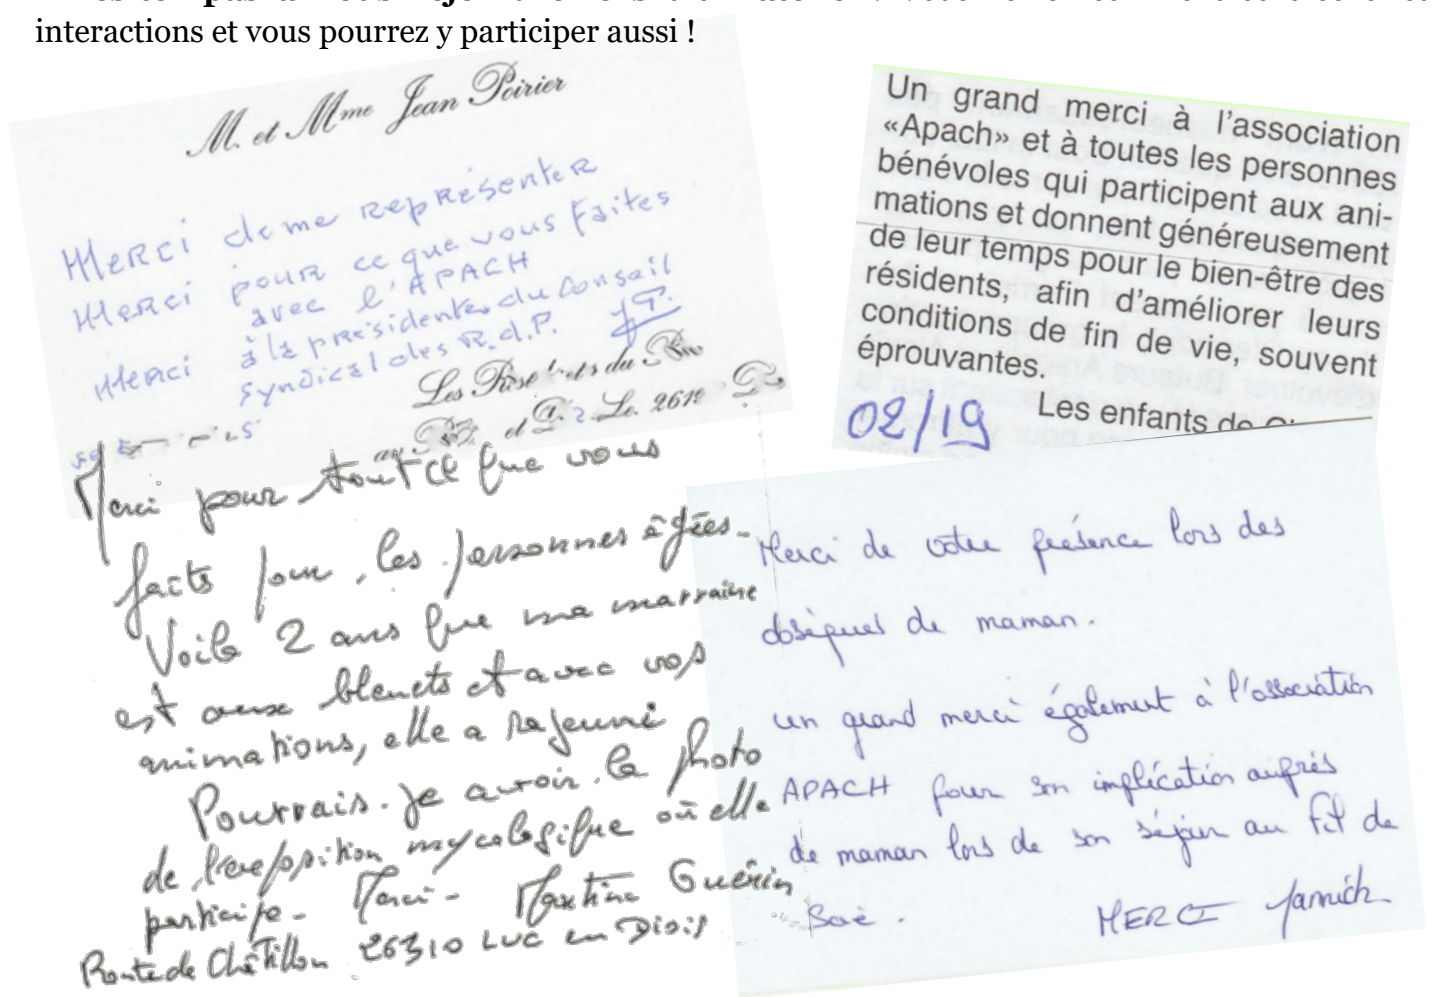 interactions et vous pourrez y participer aussi !
M. et Mme Jean Poirier
Merci de me représenter
Merci pour ce que vous faites
avec l'APACH
Merci à la présidente du Conseil
Syndical des R.d.P. JP.
Les du
au et 2612
Un grand merci à l'association
«Apach» et à toutes les personnes
bénévoles qui participent aux ani-
mations et donnent généreusement
de leur temps pour le bien-être des
résidents, afin d'améliorer leurs
conditions de fin de vie, souvent
éprouvantes.
Les enfants de
02/19
Merci pour tout ce que vous
faits pour les personnes âgées-
Voilà 2 ans que ma marraine
est aux bleuets et avec vos
animations, elle a rajeuni
Pourrais-je avoir la photo
de l'exposition mycologique où elle
participe- Merci- Martine Guérin
Route de Châtillon 26310 LUC en Diois
Merci de votre présence lors des
obsèques de maman.
un grand merci également à l'association
APACH pour son implication auprès
de maman lors de son séjour au Fil de
Soie.
MERCI Yannick